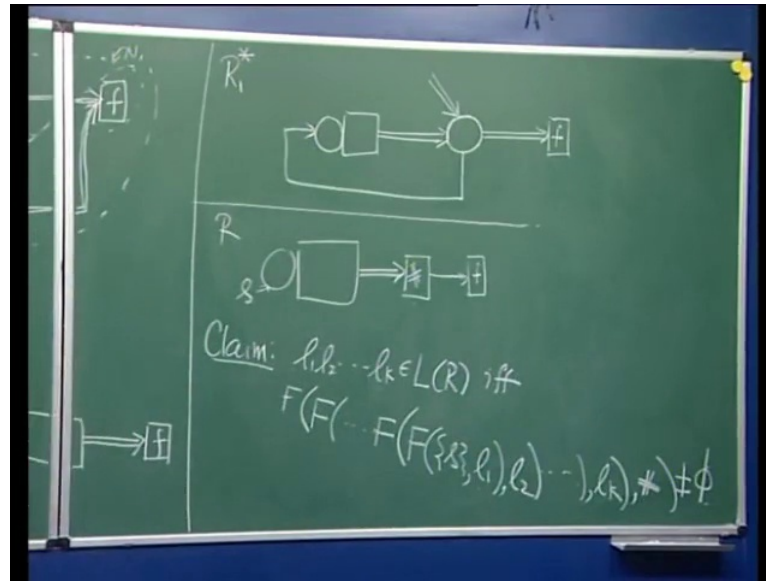 EN,
f
f
R₁*
f
R
s
*
f
Claim: l₁l₂ ··· lₖ ∈ L(R) iff
F(F(··· F(F({s}, l₁), l₂) ···), lₖ), *) ≠ ∅